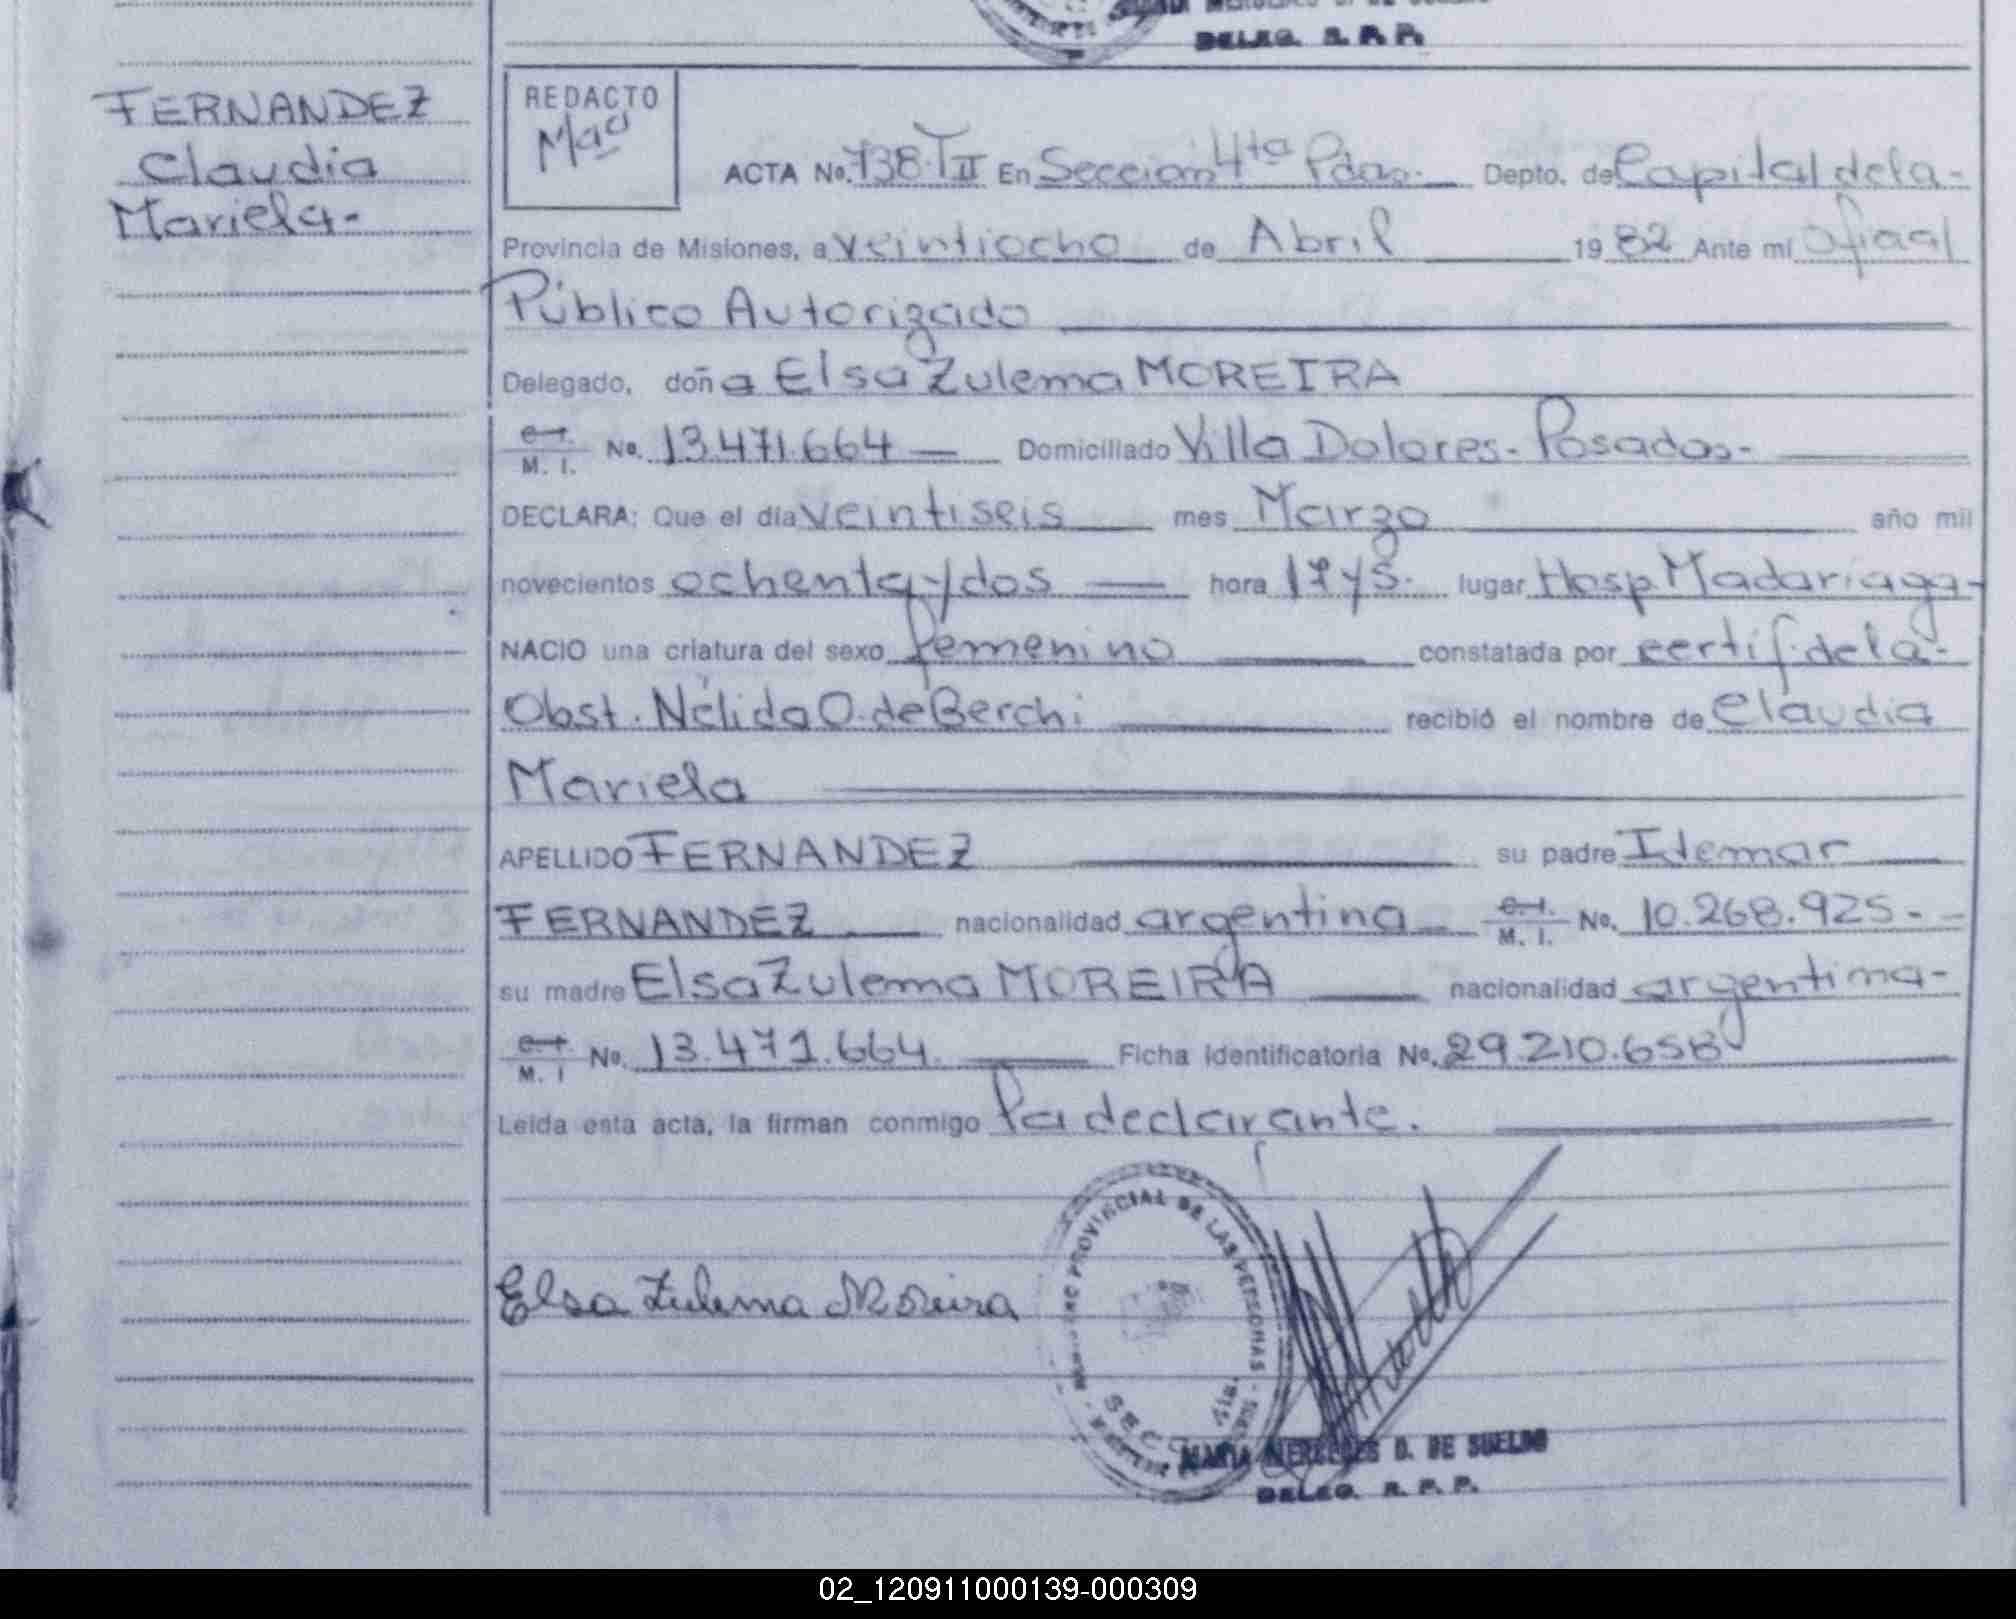 DELEG. R. P. P.
FERNANDEZ
Claudia
Mariela.-
REDACTO
ACTA No. 738.TII En Sección 4ta Pdas. Depto. de Capital de la-
Provincia de Misiones, a veintiocho de Abril 1982 Ante mí Oficial
Público Autorizado
Delegado, doña Elsa Zulema MOREIRA
C.I. M. I. No. 13.471.664 Domiciliado Villa Dolores.- Posadas.-
DECLARA: Que el día veintiseis mes Marzo año mil
novecientos ochenta y dos hora 17 y 5. lugar Hosp Madariaga-
NACIO una criatura del sexo femenino constatada por certif. de la-
Obst. Nélida O. de Berchi recibió el nombre de Claudia
Mariela
APELLIDO FERNANDEZ su padre Idemar
FERNANDEZ nacionalidad argentina C.I. M. I. No. 10.268.925.-
su madre Elsa Zulema MOREIRA nacionalidad argentina-
C.I. M. I No. 13.471.664. Ficha identificatoria No. 29.210.658
Leída esta acta, la firman conmigo la declarante.
PROVINCIAL DE LAS PERSONAS
SECC
Elsa Zulema Moreira
MARIA MERCEDES D. DE SUELDO
DELEG. R. P. P.
02_120911000139-000309